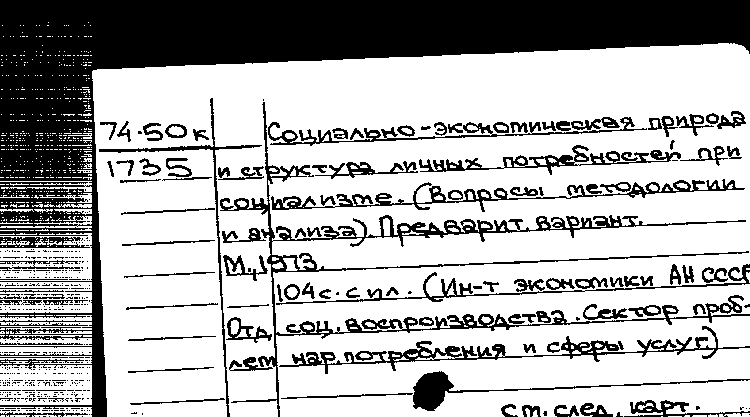 74-50к Социально-экономическая природа
1735 и структура личных потребностей при
социализме. (Вопросы методологии
и анализа). Предварит. вариант.
М., 1973.
104с. с ил. (Ин-т экономики АН СССР
Отд. соц. воспроизводства. Сектор проб-
лем нар. потребления и сферы услуг)
см. след. карт.